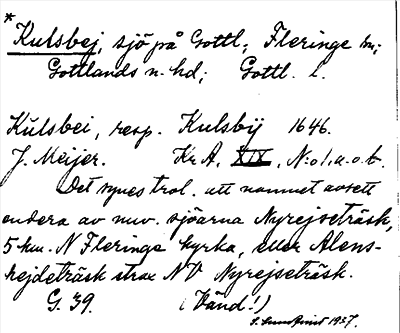 * Kulsbej, sjö på Gottl., Fleringe sn;
Gottlands n. hd; Gottl. l.
Kulsbei, resp. Kulsbÿ 1646.
J. Meijer. Kr.A. XIX, N:o 1, a.o.b.
Det synes trol. att namnet avsett
endera av nuv. sjöarna Nyrejseträsk,
5 km. N Fleringe kyrka, eller Alens-
hejdeträsk strax NV Nyrejseträsk.
G. 39. (Vänd!)
S. Sundquist 1937.